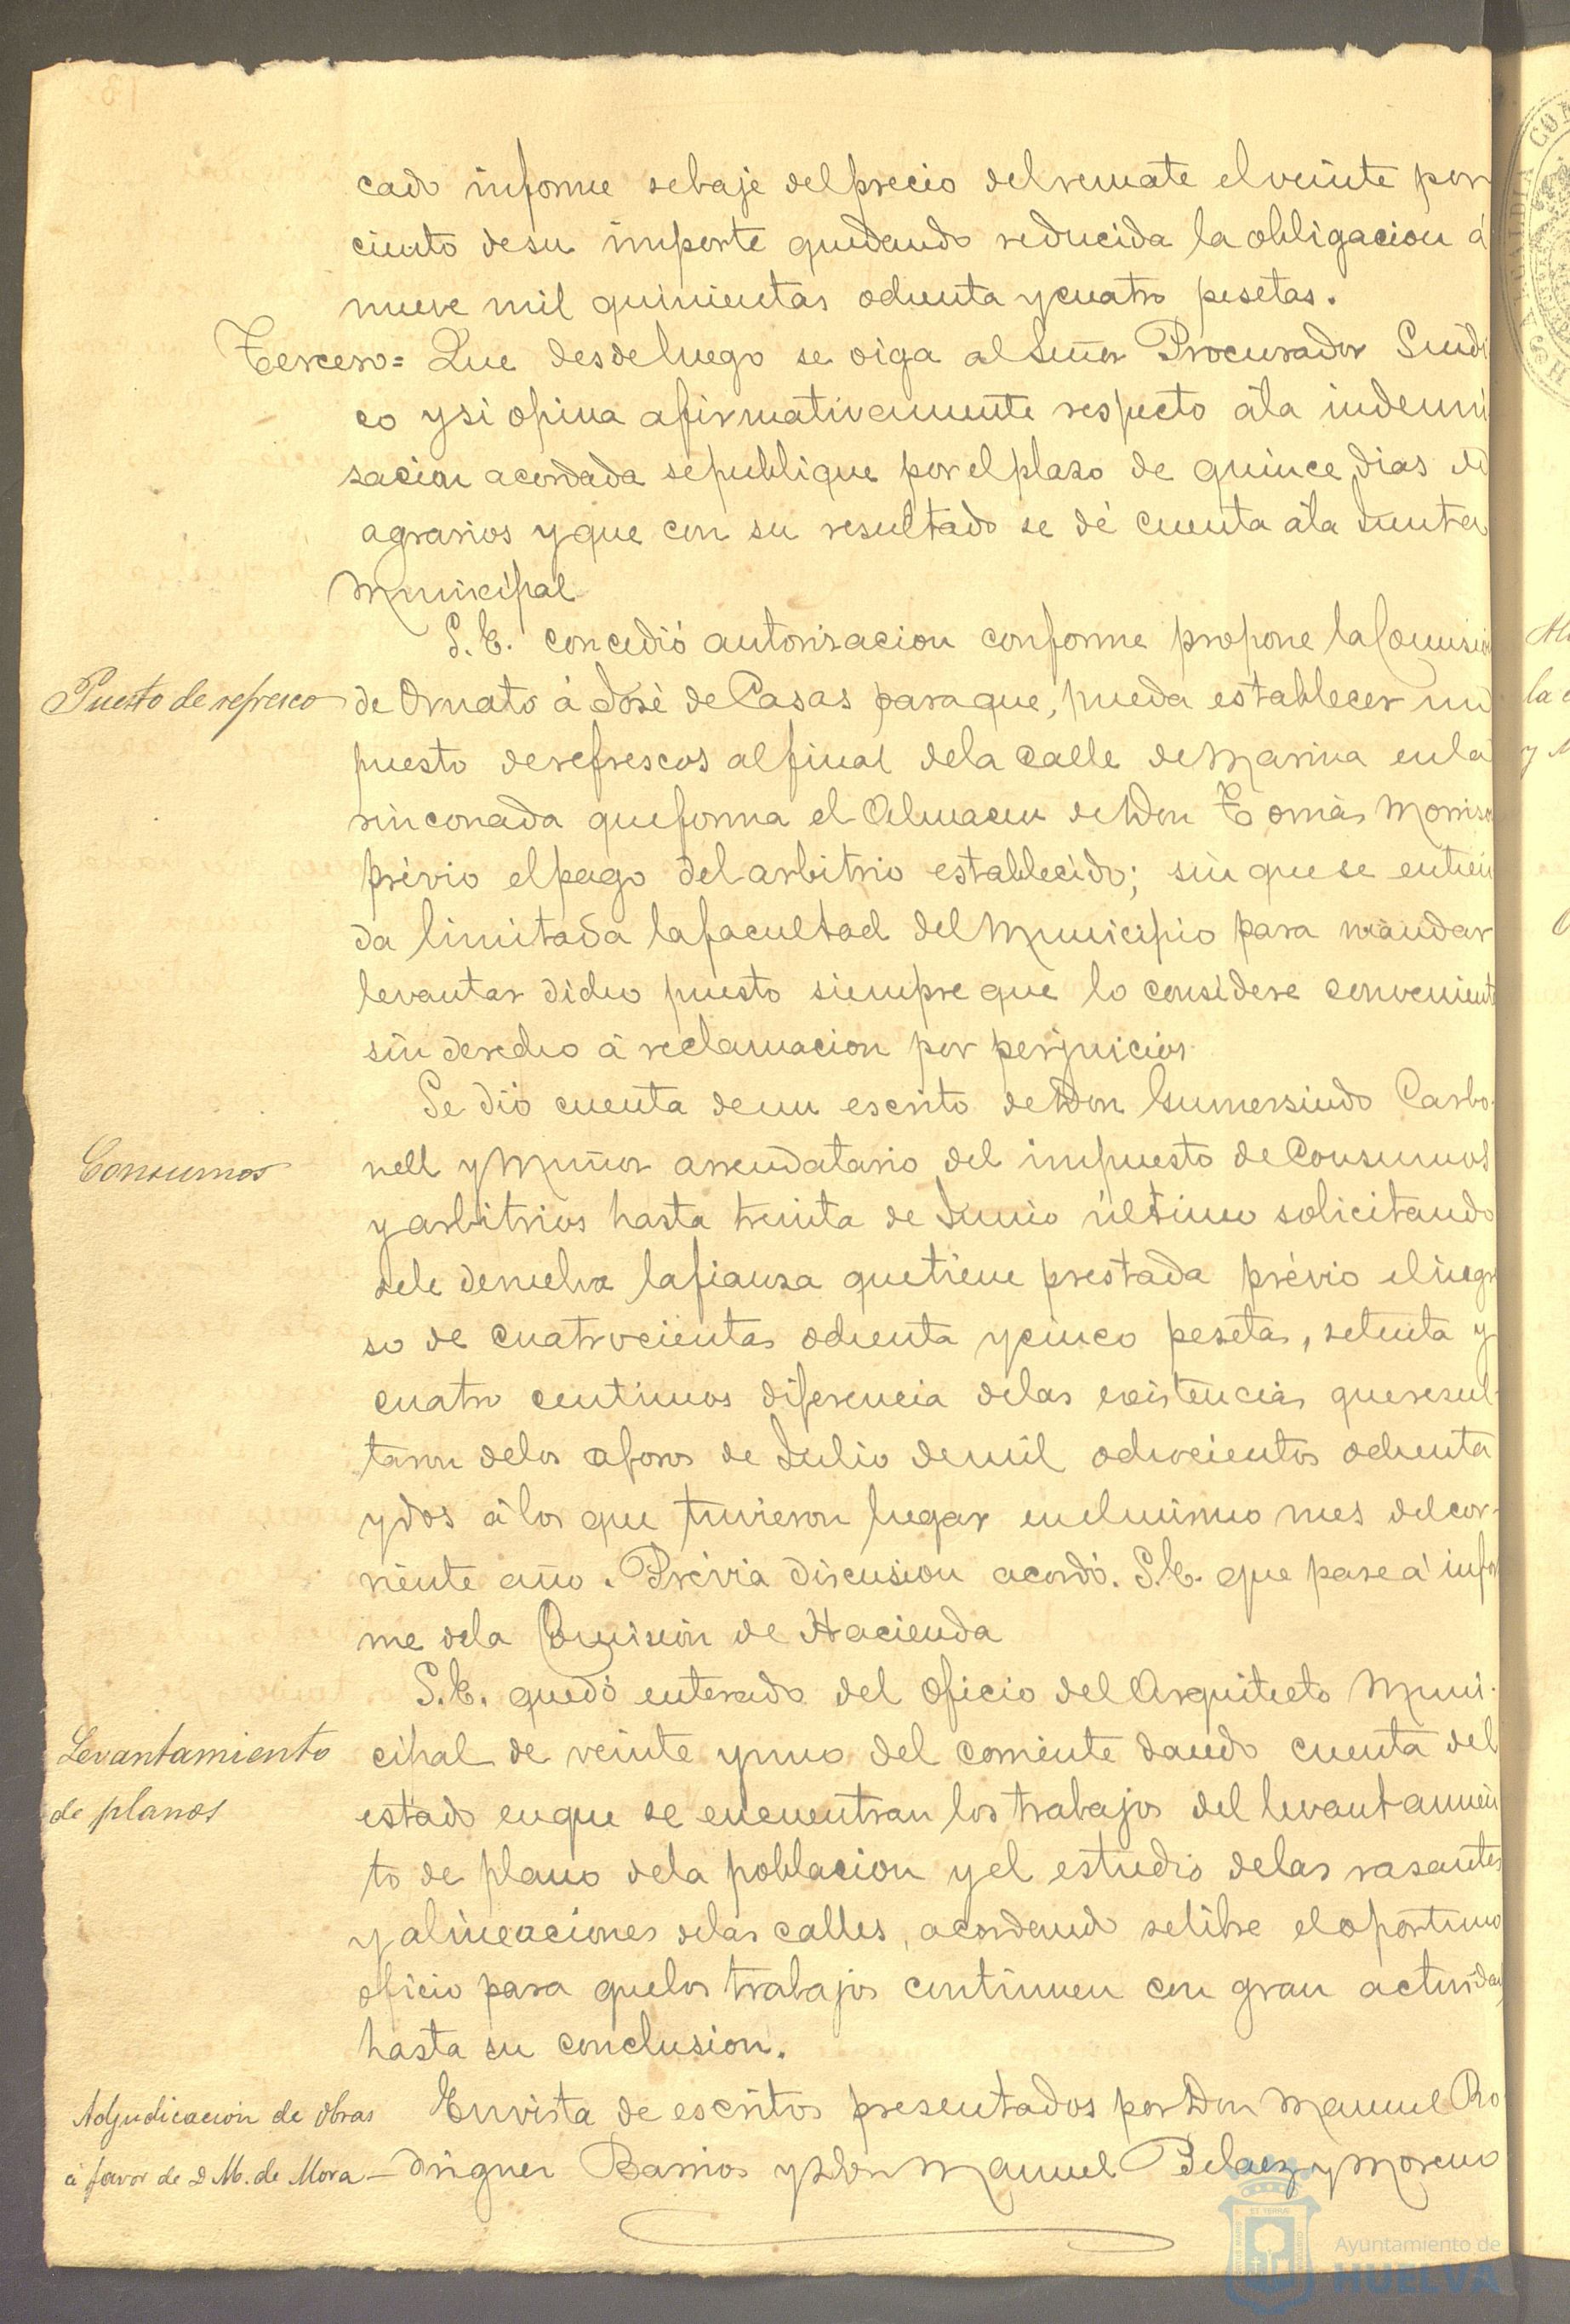 cado informe se baje del precio del remate el veinte por
ciento de su importe quedando reducida la obligacion á
nueve mil quinientas ochenta y cuatro pesetas.
Tercero= Que desde luego se oiga al Señor Procurador Sindi
co y si opina afirmativamente respecto á la indemni
sacion acordada se publique por el plaso de quince dias el
agrarios y que con su resultado se dé cuenta á la Junta
Municipal
S. E. concedió autorisacion conforme propone la Comision
Puesto de refresco
de Ornato á José de Casas para que, pueda establecer un
puesto de refrescos al final de la calle de Marina en la
rinconada que forma el Almacen de Don Tomás Morrison
prévio el pago del arbitrio establecido; sin que se entien
da limitada la facultad del Municipio para mandar
levantar dicho puesto siempre que lo considere conveniente
sin derecho á reclamacion por perjuicios
Se dió cuenta de un escrito de Don Gumersindo Carbo-
Consumos
nell y Muñoz arrendatario del impuesto de Consumos
y arbitrios hasta treinta de Junio último solicitando
se le devuelva la fianza que tiene prestada prévio el ingre
so de cuatrocientas ochenta y cinco pesetas, setenta y
cuatro centimos diferencia de las existencias que resul-
taron de los aforos de Julio de mil ochocientos ochenta
y dos á los que tuvieron lugar en el mismo mes del cor-
riente año. Prévia discusion acordó. S. E. que pase á infor
me de la Comision de Hacienda
S. E. quedó enterado del oficio del Arquitecto Muni-
Levantamiento
cipal de veinte y uno del corriente dando cuenta del
de planos
estado en que se encuentran los trabajos del levantamien
to de plano de la poblacion y el estudio de las rasantes
y alineaciones de las calles, acordando se libre el oportuno
oficio para que los trabajos continuen con gran actividad
hasta su conclusion.
Adjudicacion de obras
En vista de escritos presentados por Don Manuel Ro
á favor de D M. de Mora
driguez Barrios y Don Manuel Pelaez y Moreno
Ayuntamiento de
HUELVA